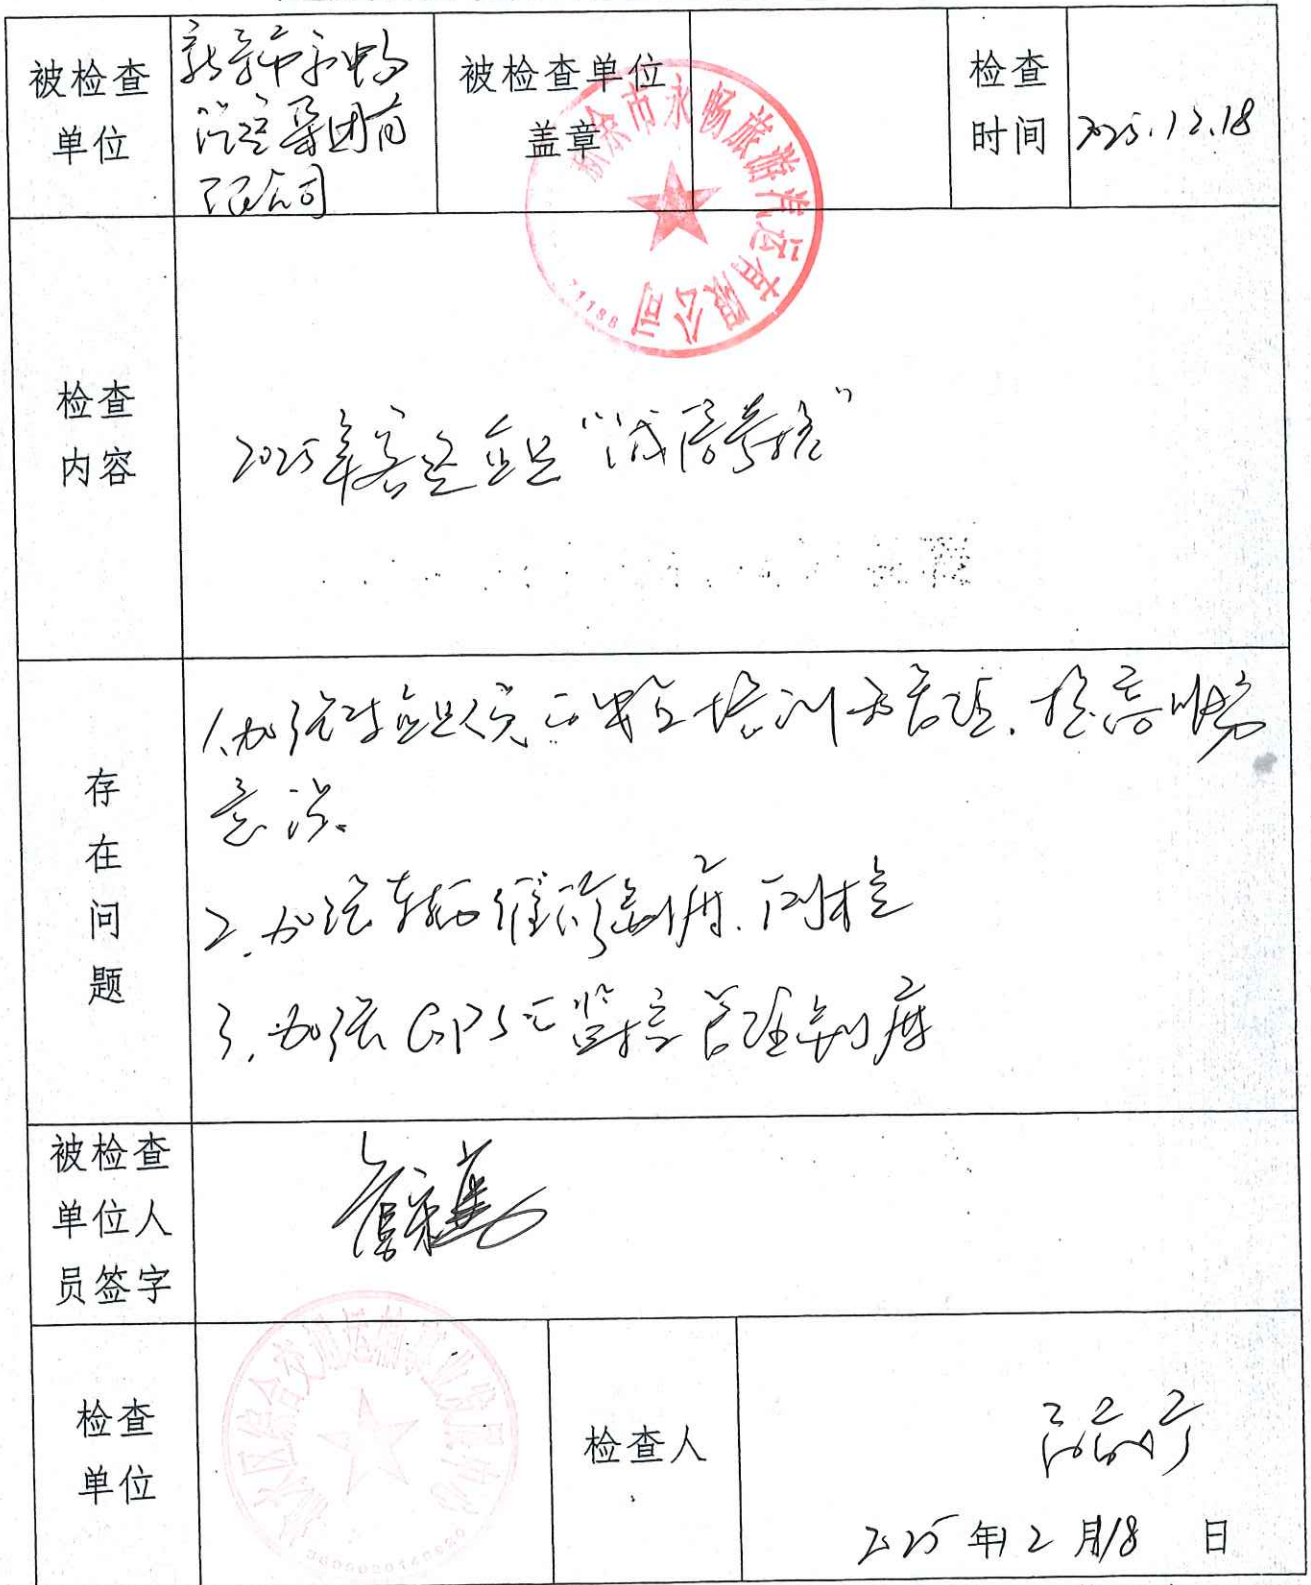 被检查
单位
新余市永畅
汽运集团有
限公司
被检查单位
盖章
新余市永畅旅游汽运有限公司
71188
检查
时间
2025.12.18
检查
内容
2025年客运企业“诚信考核”
存
在
问
题
1.加强对企业人员的安全培训和管理.提高服务
意识。
2.加强车辆维修制度.
3.加强GPS的监控管理制度
被检查
单位人
员签字
检查
单位
渝水区综合交通运输事业发展中心
检查人
2025年12月18 日